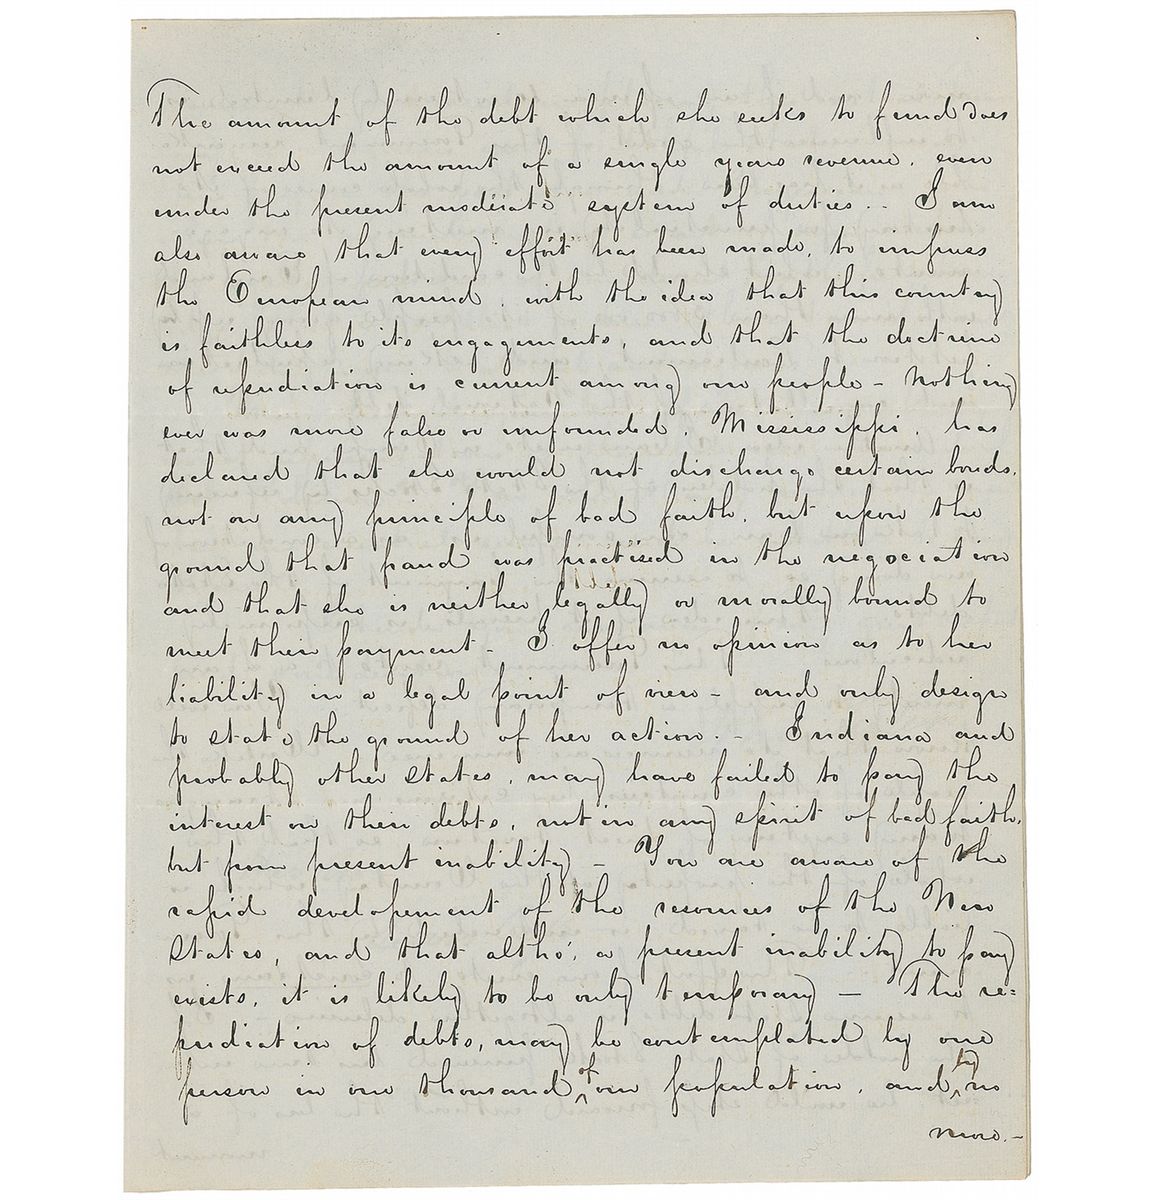 The amount of the debt which she seeks to fund does
not exceed the amount of a single years revenue, even
under the present moderate system of duties. - I am
also aware that every effort has been made, to impress
the European mind, with the idea that this country
is faithless to its engagements, and that the doctrine
of repudiation is current among our people - Nothing
ever was more false or unfounded. Mississippi, has
declared that she would not discharge certain bonds,
not on any principle of bad faith, but upon the
ground that fraud was practised in the negociation
and that she is neither legally or morally bound to
meet their payment - I offer no opinion as to her
liability in a legal point of view - and only design
to state the ground of her action. - Indiana and
probably other States, may have failed to pay the
interest on their debts, not in any spirit of bad faith,
but from present inability - You are aware of the
rapid developement of the resources of the New
States, and that altho', a present inability to pay
exists, it is likely to be only temporary — The re=
pudiation of debts, may be contemplated by one
person in one thousand of our population, and by no
more. -